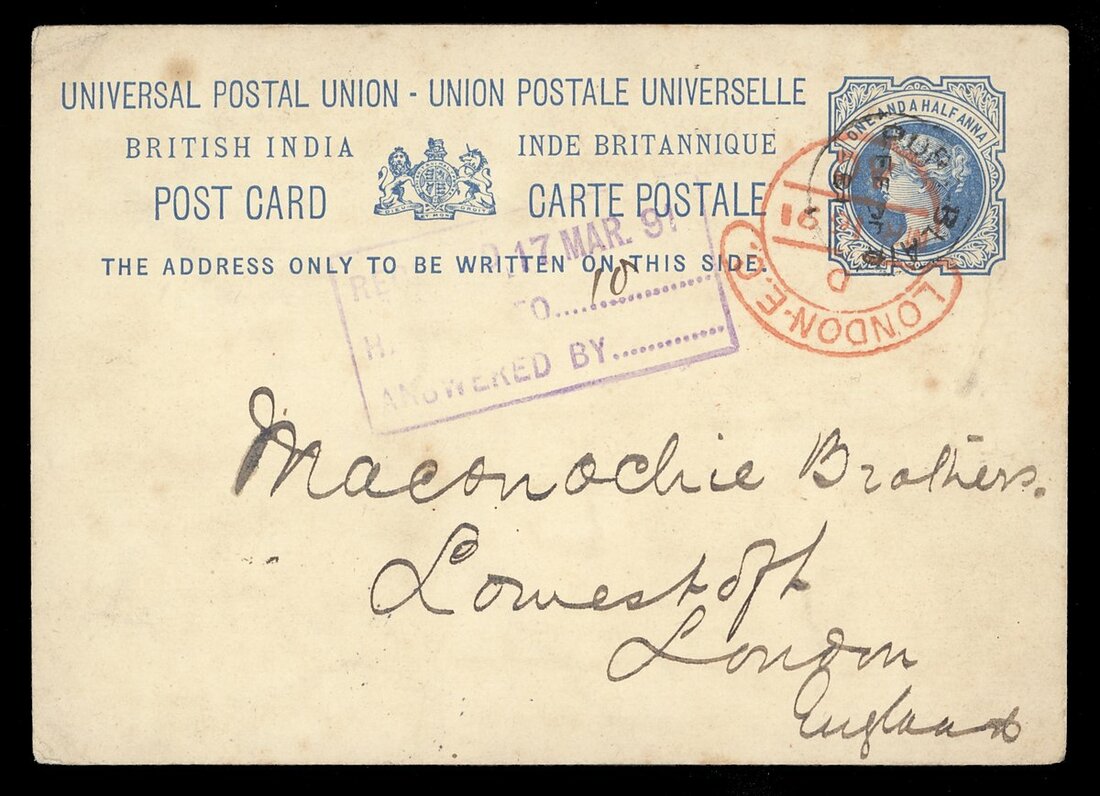 UNIVERSAL POSTAL UNION - UNION POSTALE UNIVERSELLE
BRITISH INDIA INDE BRITANNIQUE
POST CARD CARTE POSTALE
THE ADDRESS ONLY TO BE WRITTEN ON THIS SIDE.
ONE AND A HALF ANNA
DIEU ET MON DROIT
LONDON·E.C.
17 MAR. 91
TO....10
ANSWERED BY
Maconochie Brothers.
Lowestoft
London
England